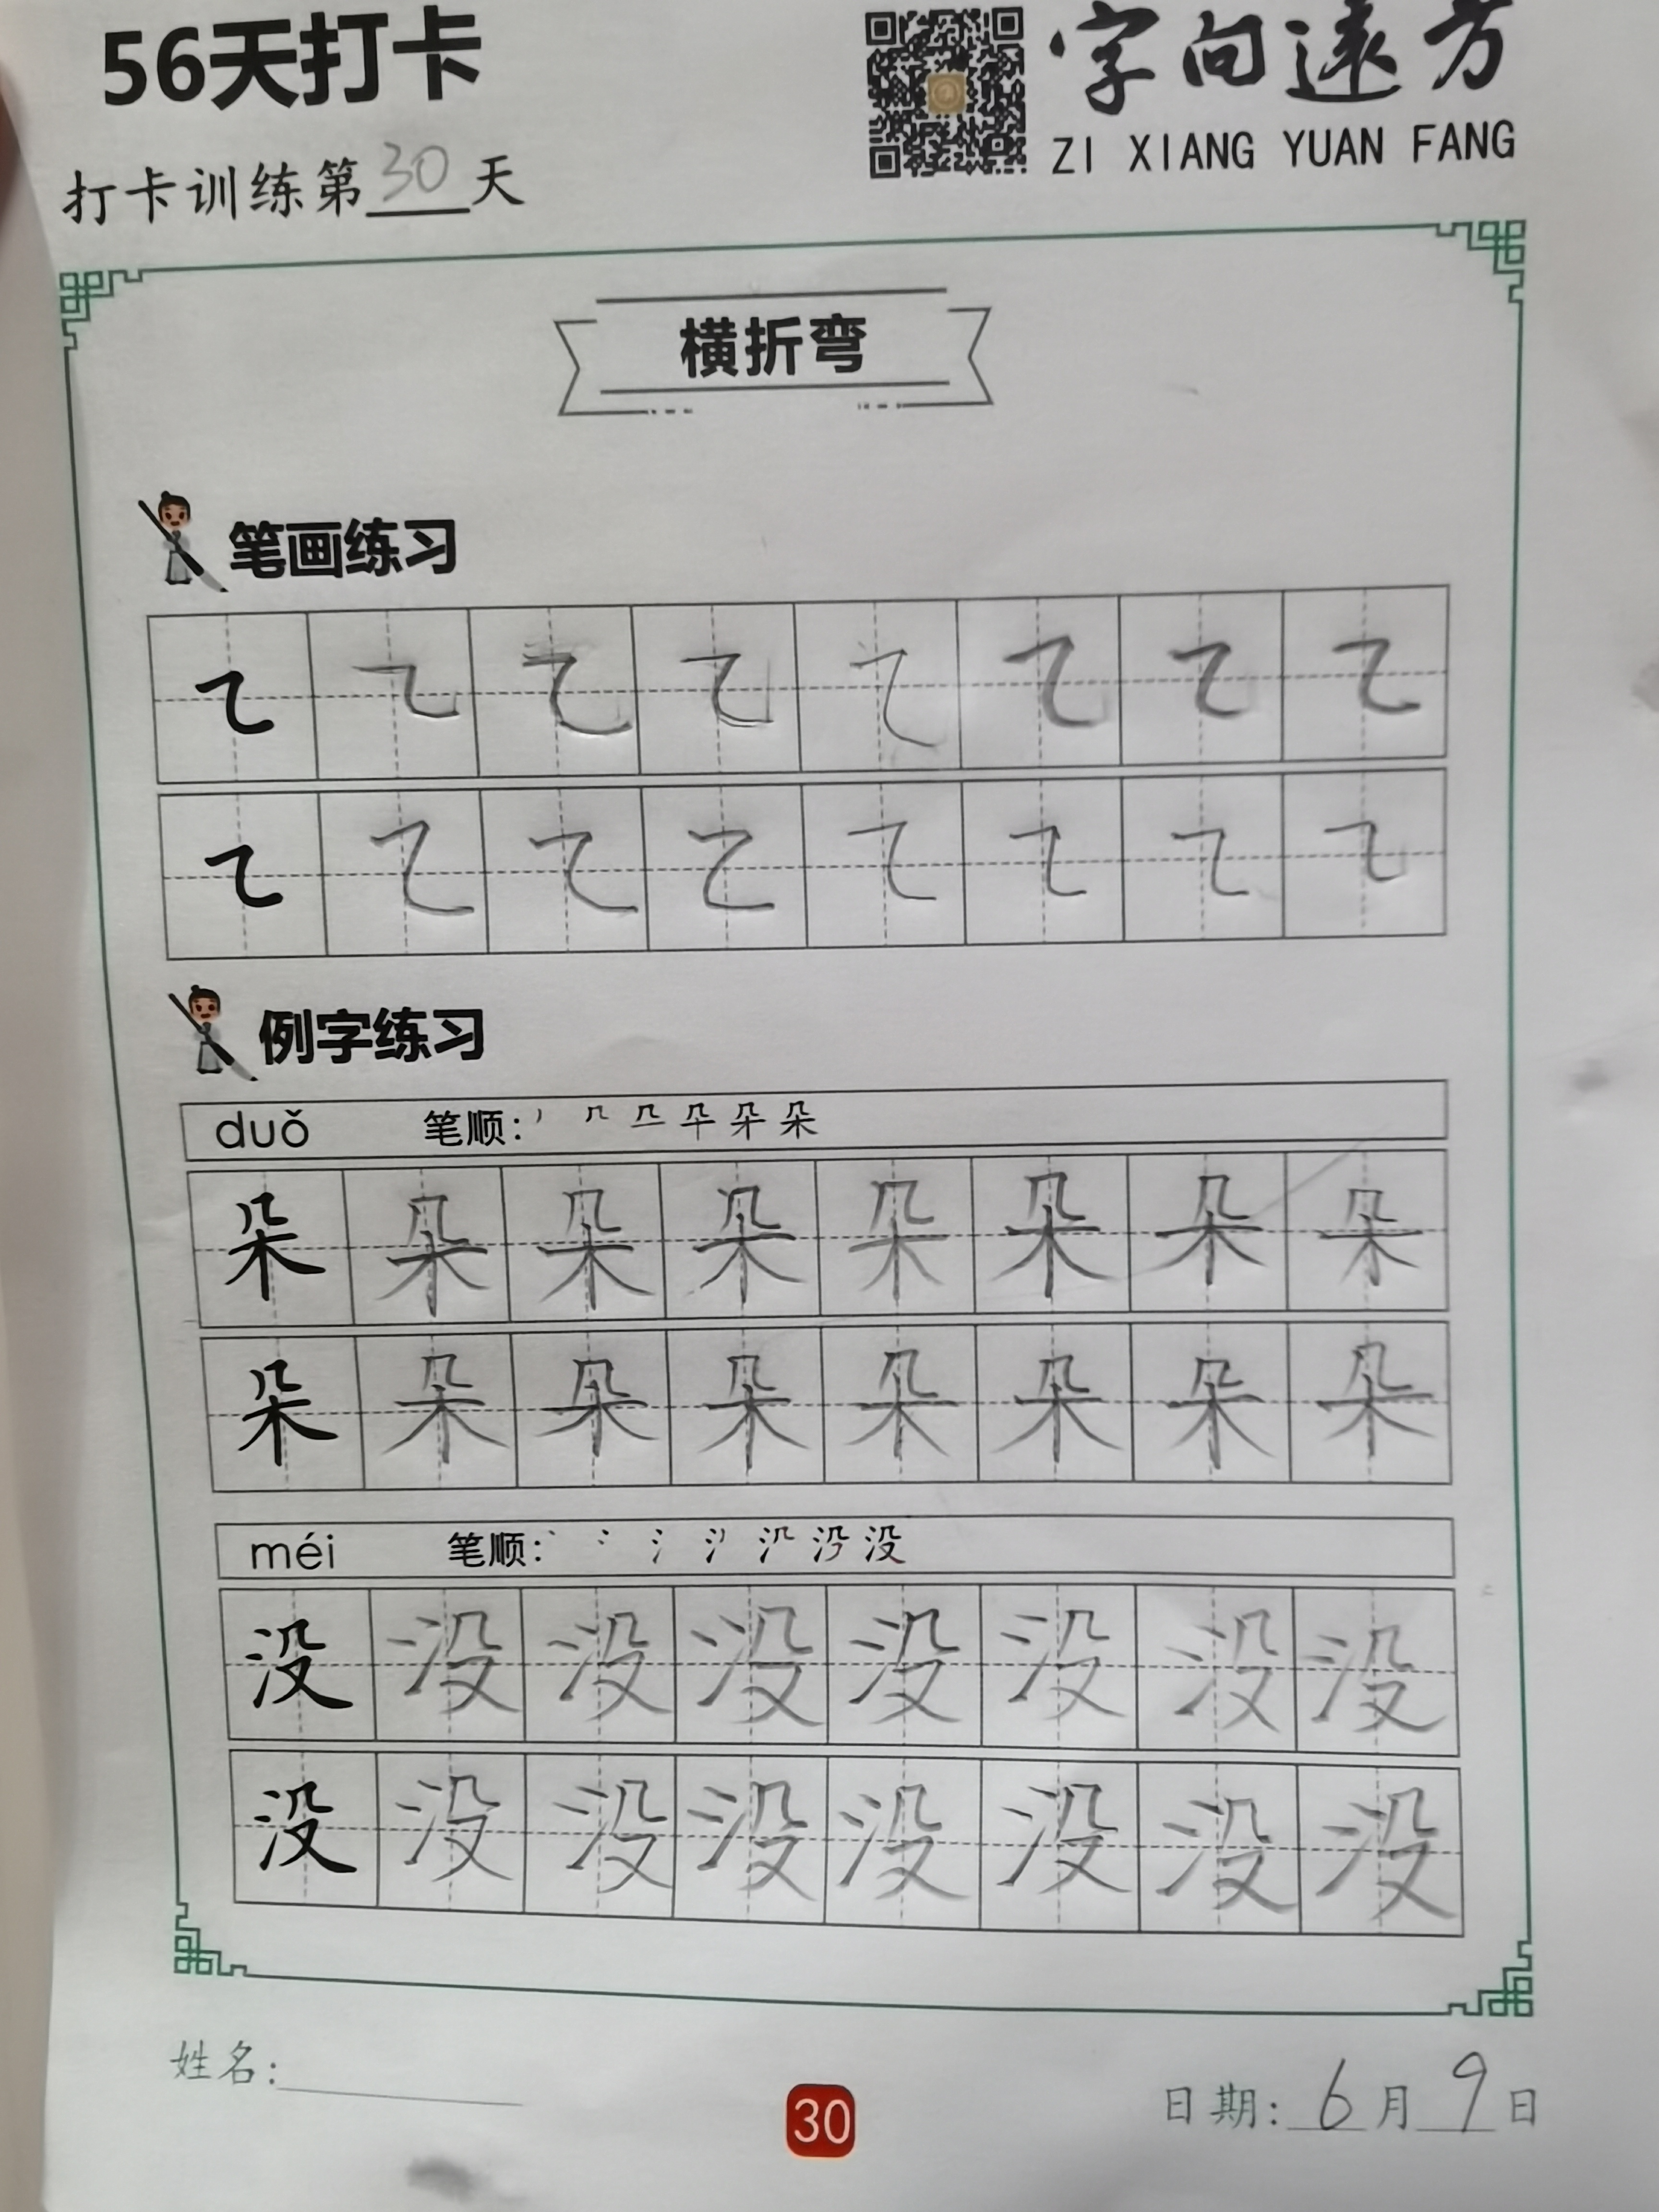 56天打卡
字向遠方
ZI XIANG YUAN FANG
打卡训练第30天
横折弯
笔画练习
例字练习
duǒ 笔顺:
朵 朵 朵 朵 朵 朵 朵 朵
朵 朵 朵 朵 朵 朵 朵 朵
méi 笔顺:
没 没 没 没 没 没 没 没
没 没 没 没 没 没 没 没
姓名:
30
日期: 6月9日